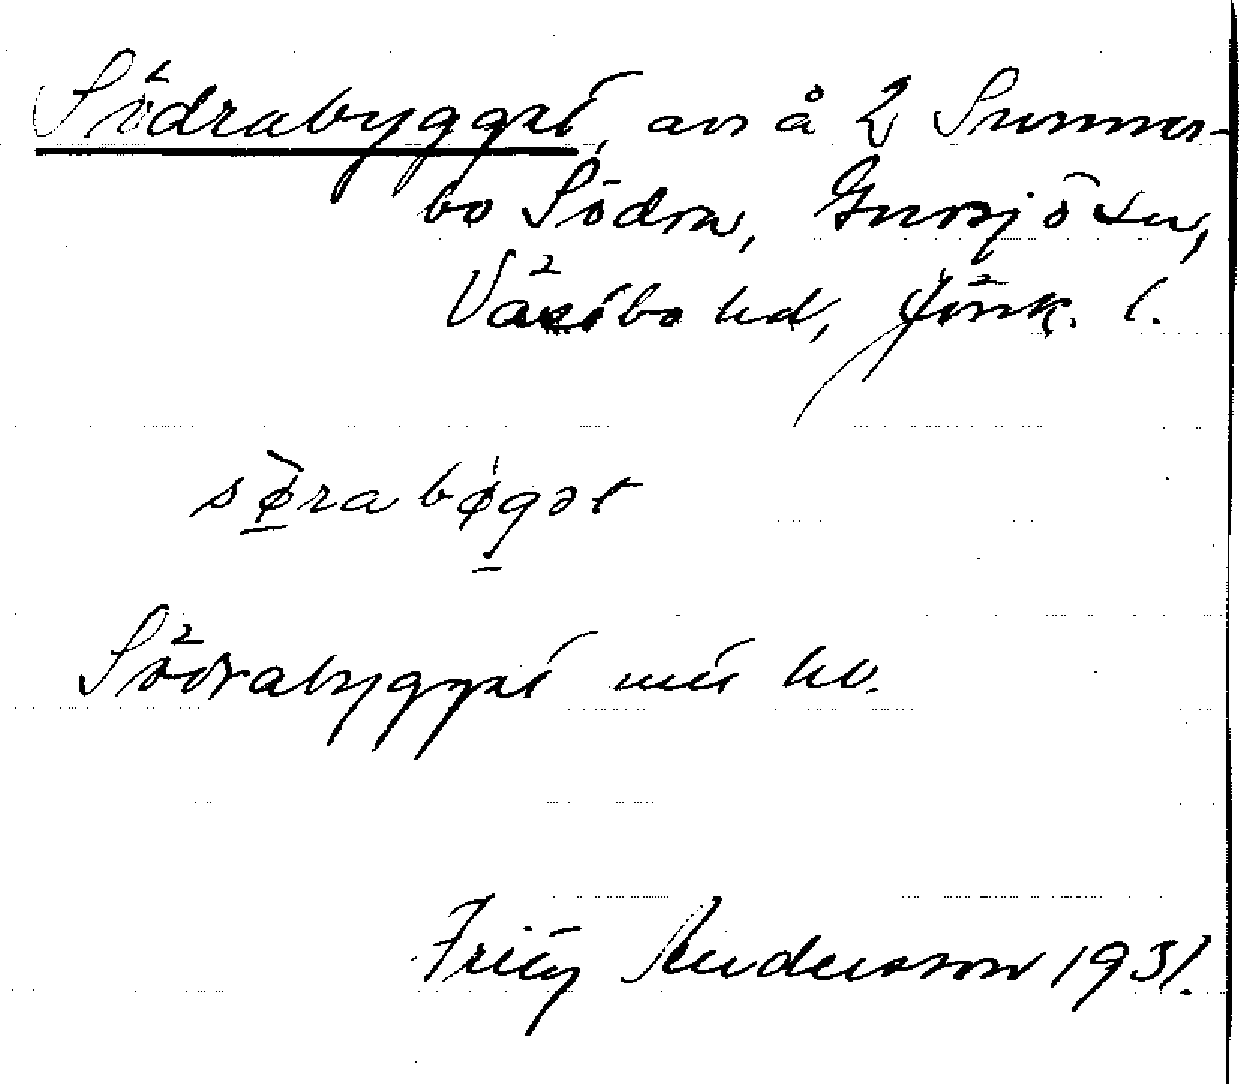 Södrabygget, avs å 2 Sunner-
bo Södra, Gnosjö sn,
Västbo hd, Jönk. l.
sø̀rabǿgət
Södrabygget
Fritz Andersson 1931.